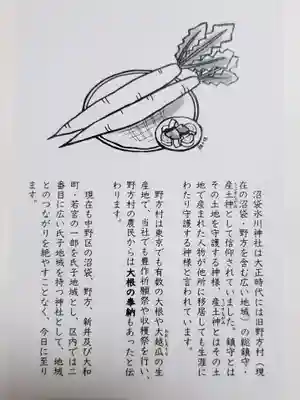 沼袋氷川神社は大正時代には旧野方村（現
在の沼袋・野方を含む広い地域）の総鎮守・
産土神として信仰されていました。鎮守とは
その土地を守護する神様・産土神とはその土
地で産まれた人物が他所に移居しても生涯に
わたり守護する神様と言われています。
野方村は東京でも有数の大根や大越瓜の生
産地で、当社でも豊作祈願祭や収穫祭を行い、
野方村の農民からは大根の奉納もあったと伝
わります。
現在も中野区の沼袋、野方、新井及び大和
町・若宮の一部を氏子地域とし、区内では二
番目に広い氏子地域を持つ神社として、地域
とのつながりを絶やすことなく、今日に至り
ます。